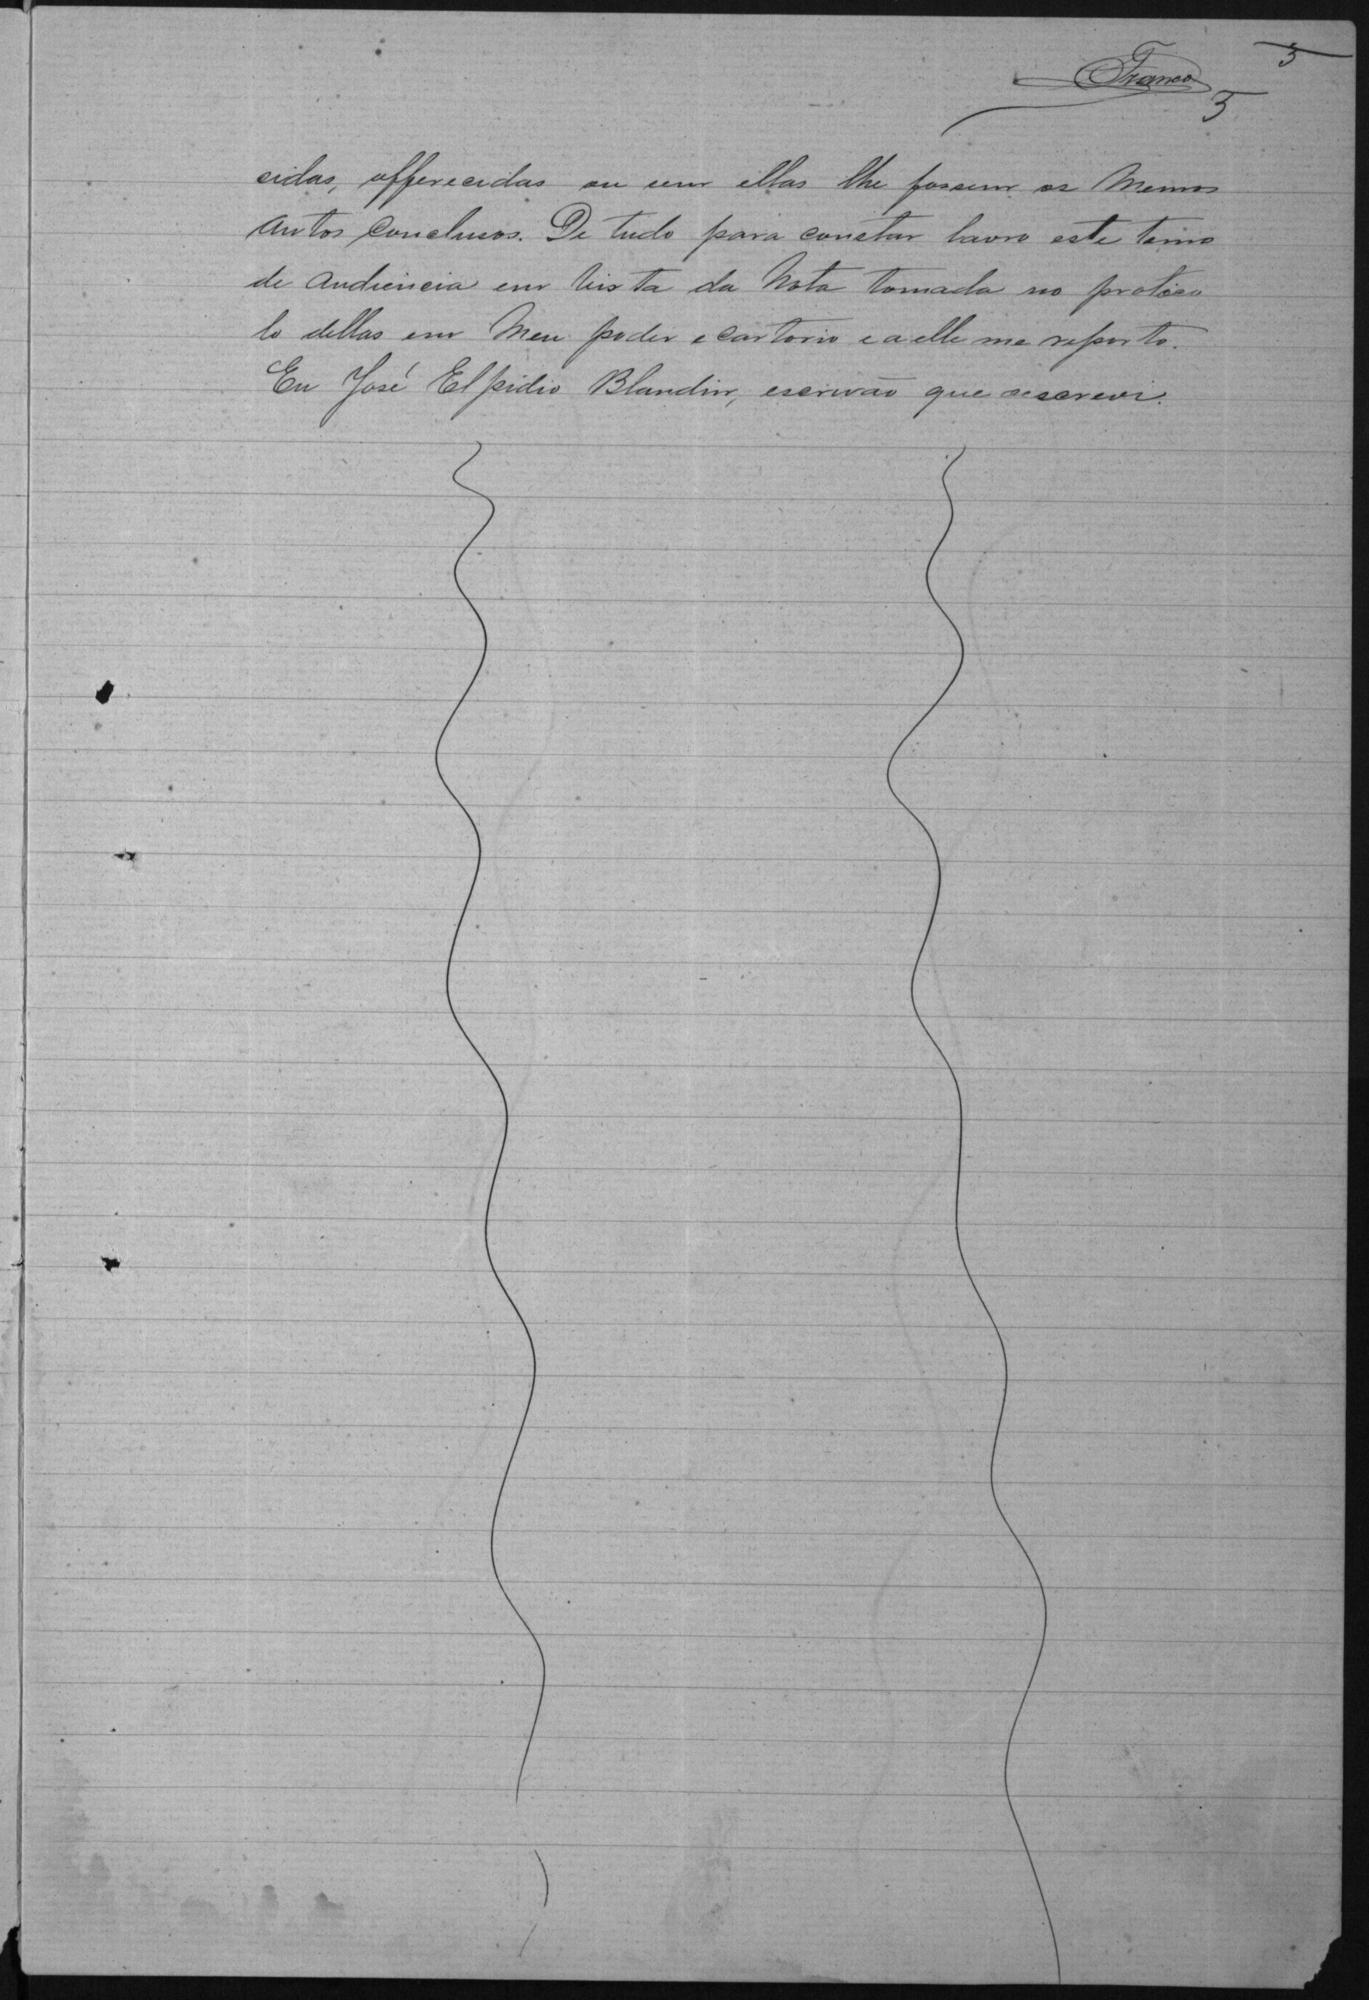 5
Franco
5
cidas, offerecidas ou sem ellas lhe fossem os mesmos
autos conclusos. De tudo para constar lavro este termo
de audiencia em vista da nota tomada no protoco
lo dellas em meu poder e cartorio e a elle me reporto.
Eu José Elpidio Blandin, escrivão que o escrevi.